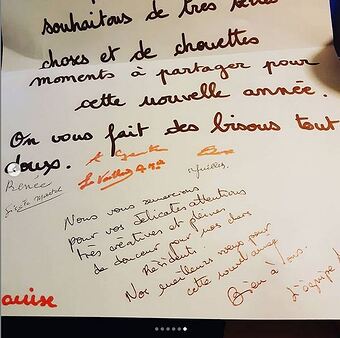 souhaitons de très belles
choses et de chouettes
moments à partager pour
cette nouvelle année.
On vous fait des bisous tout
doux.
Renée
Nous vous remercions
pour vos délicates attentions
très créatives et pleines
de douceur pour nos chers
Résidents.
Nos meilleurs vœux pour
cette nouvelle année
Bien à vous.
L'équipe